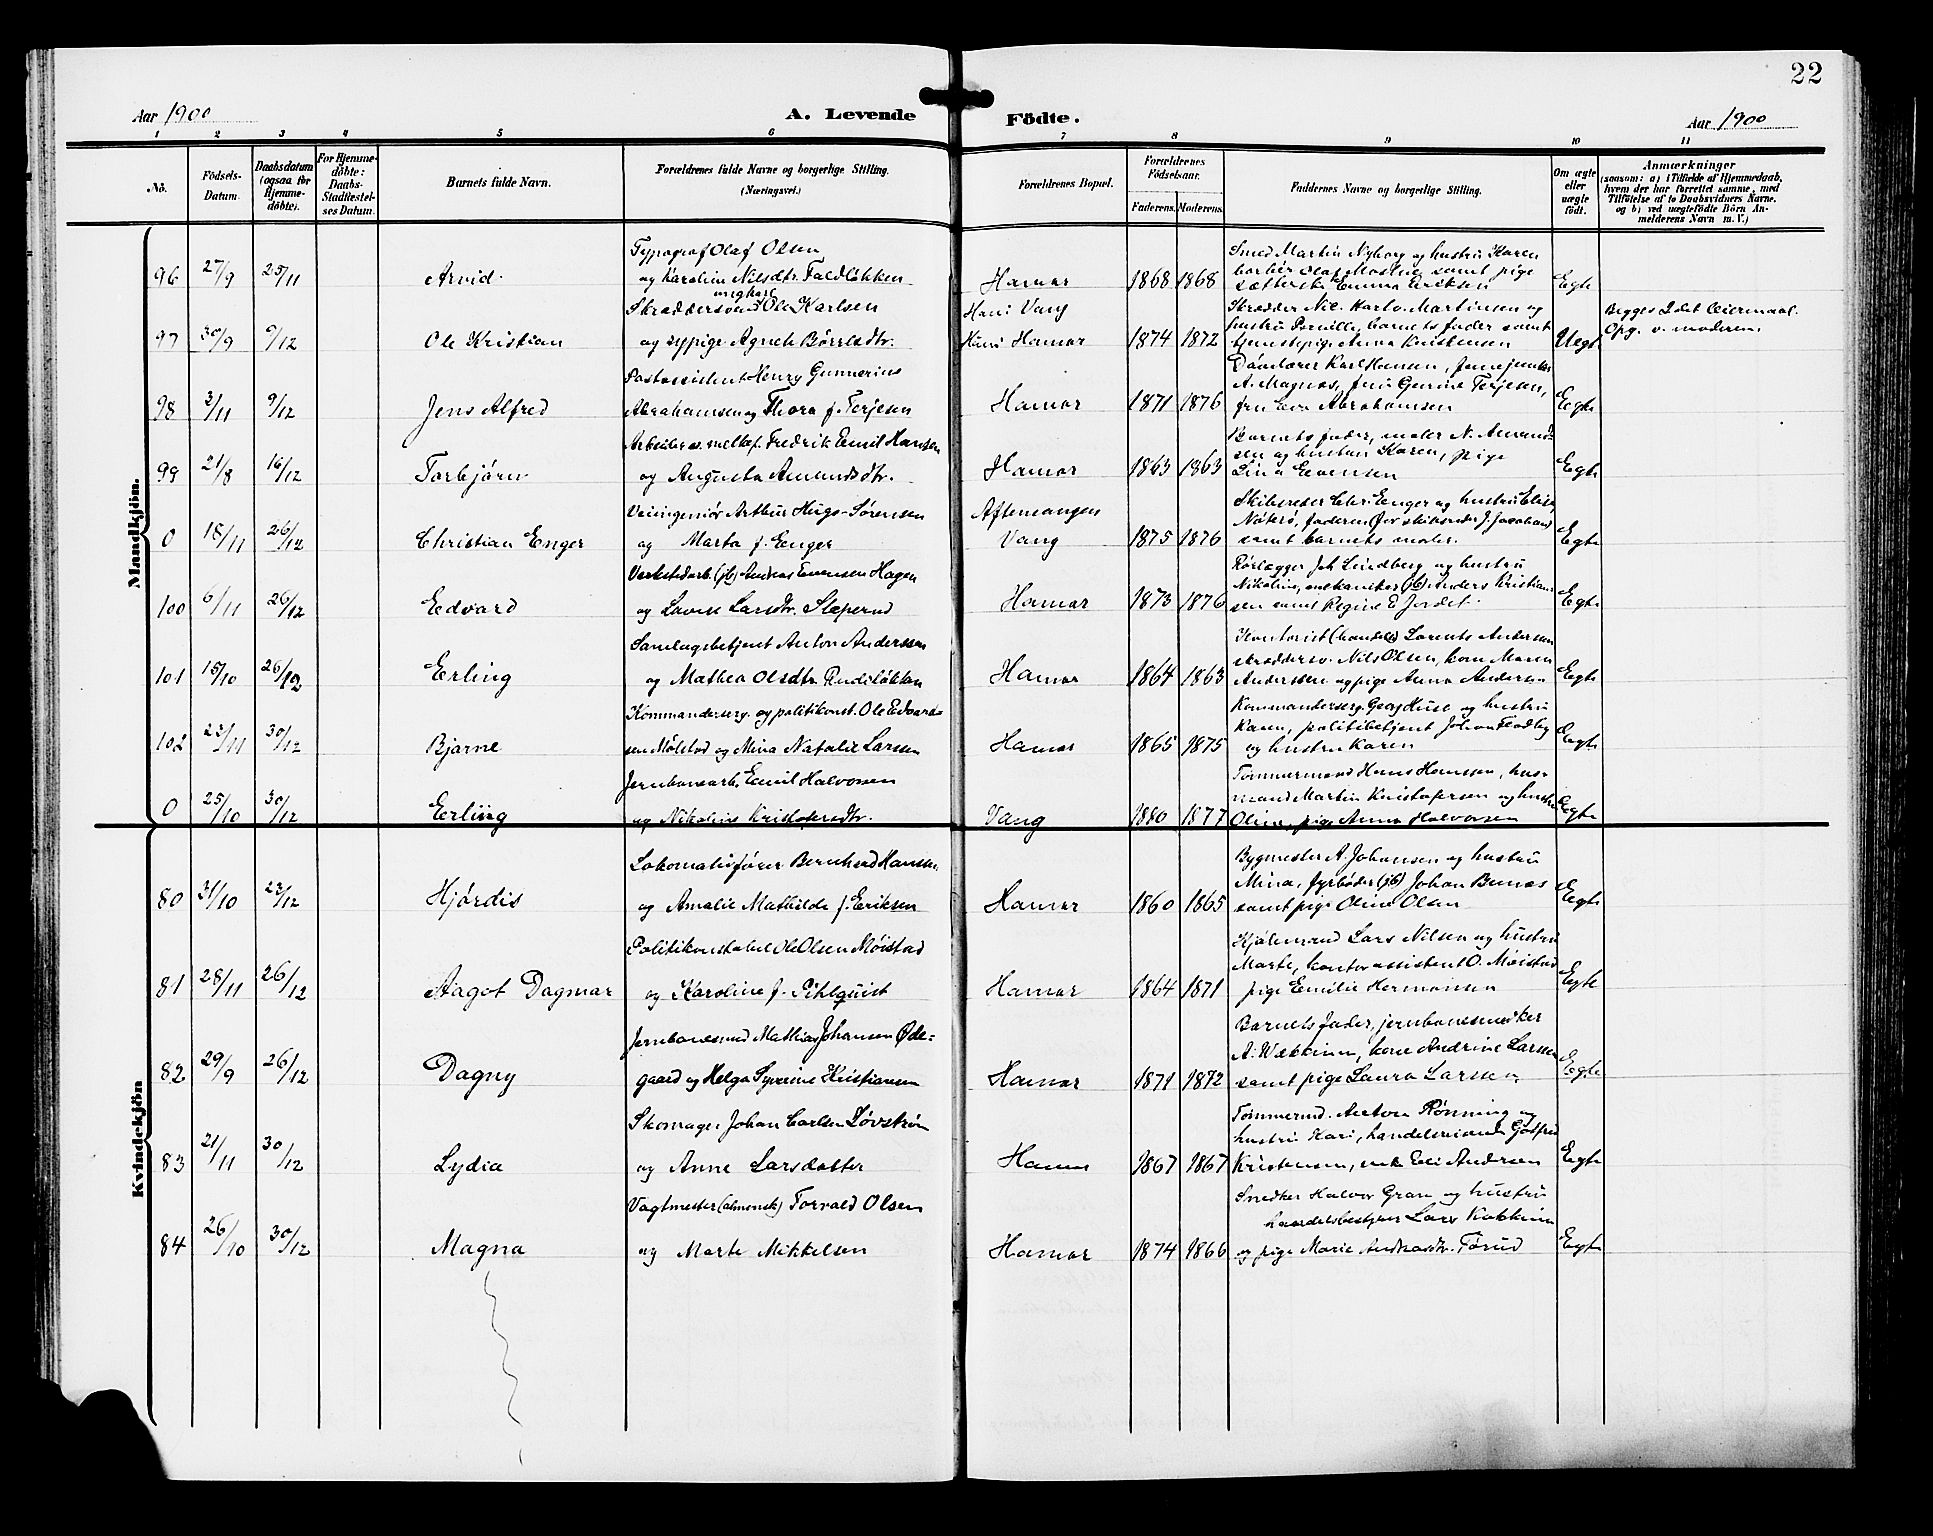 22
Aar 1900
A. Levende Födte.
Aar 1900
1 2 3 4 5 6 7 8 9 10 11
No.
Födsels-Datum.
Daabsdatum (ogsaa for Hjemme-döbte).
For Hjemme-döbte: Daabs-Stadfæstel-ses Datum.
Barnets fulde Navn.
Forældrenes fulde Navne og borgerlige Stilling.
(Næringsvei.)
Forældrenes Bopæl.
Forældrenes Födselsaar.
Faderens. Moderens.
Faddernes Navne og borgerlige Stilling.
Om ægte eller uægte født.
Anmærkninger
(saasom: a) i Tilfælde af Hjemmedaab,
hvem der har forrettet samme, med
Tilføielse af to Daabsvidners Navne,
og b) ved uægtefödte Börn An-
melderens Navn m. V.)
Mandkjön.
96 27/9 25/11 Arvid
Typograf Olaf Olsen
og Karoline Nilsdtr. Faldløkken
Hamar 1868 1868
Smed Martin Nyborg og hustru Karen
barber Olaf samt pige
Emma Eriksen
Egte
97 30/9 9/12 Ole Kristian
ungkarl
Ole Karlsen
og sypige Agnete
Vang
Hamar 1874 1872
Skrædder Nic. Martinsen og
hustru Pernille, barnets fader samt
tjenestepige Anna Kristensen
Uegte
Begges 2det leiermaal.
Opg. v. moderen
98 2/11 9/12 Jens Alfred
Postassistent Henry Gunnerius
Abrahamsen og Thora f. Terjesen
Hamar 1871 1876
Karl Hansen,
A. Magnas, Terjesen,
fru Abrahamsen
Egte
99 21/8 16/12 Torbjørn
Fredrik Emil Hansen
og Augusta Amundsdtr.
Hamar 1863 1863
Barnets fader, maler N. Amund-
sen og hustru Karen, pige
Lina Evensen
Egte
0 18/11 26/12 Christian Enger
Veiingeniør Arthur Hugo Sørensen
og Marta f. Enger
Aftensangen
Vang 1875 1876
Skibsreder Chr. Enger og hustru Elise
Nøterø, faderen (for skibsreder J. Jacobsen)
samt barnets moder.
Egte
100 6/11 26/12 Edvard
Verkstedarb. (jb) Andreas Evensen Hagen
og Lovise Larsdtr. Sleperud
Hamar 1873 1876
Rørlægger Joh. Lindberg og hustru
Nikoline, mekaniker (jb) Anders Kristian-
sen samt Regine E. Jordet.
Egte
101 15/10 26/12 Erling
Samlagsbetjent Anton Anderssen
og Mathea Olsdtr. Rudsløkken
Hamar 1864 1863
Kontorist Lorents Andersen
skræddersv. Nils Olsen, kone Maren
Anderssen og pige Anna Andersen
Egte
102 22/11 30/12 Bjarne
Kommanderserg. og politikonst. Ole Edvard-
sen Mølstad og Mina Natalie Larsen
Hamar 1865 1875
Kommanderserg. Georg Huse og hustru
Karen, politibetjent Johan Flodby
og hustru Karen
Egte
0 25/10 30/12 Erling
Jernbanearb. Emil Halvorsen
og Nikoline Kristofersdtr.
Vang 1880 1877
Tømmermand Hans Hanssen, hus-
mand Martin Kristofersen og hustru
Oline, pige Anna Halvorsen
Egte
Kvindekjön
80 31/10 23/12 Hjørdis
Lokomotivfører Bernhard Hansen
og Amalie Mathilde f. Eriksen
Hamar 1860 1865
Bygmester A. Johansen og hustru
Mina, fyrbøder (jb) Johan Bunæs
samt pige Oline Olsen
Egte
81 28/11 26/12 Aagot Dagmar
Politikonstabel Ole Olsen Møistad
og Karoline f. Pihlquist
Hamar 1864 1871
Kjølemand Lars Nilsen og hustru
Marte, kontorassistent O. Møistad
pige Emilie Hermansen
Egte
82 29/9 26/12 Dagny
Jernbanesmed Mathias Johansen Øde-
gaard og Helga Syverine Kristiansen
Hamar 1871 1872
Barnets fader, jernbanesnekker
A. Wekkinn, kone Andrine Larssen
samt pige Laura Larssen
Egte
83 21/11 30/12 Lydia
Skomager Johan Carlsen Løvstrøm
og Anne Larsdatter
Hamar 1867 1867
Tømmermd. Anton Rønning og
hustru Kari, handelsreisende Gotfred
Kristensen, enke Eli Andersen
Egte
84 26/10 30/12 Magna
Vagtmester (almensk.) Torvald Olsen
og Marte Mikkelsen
Hamar 1874 1866
Snedker Halvor Gran og hustru
handelsbestyrer Lars
og pige Marie Andreasdtr. Tørud
Egte